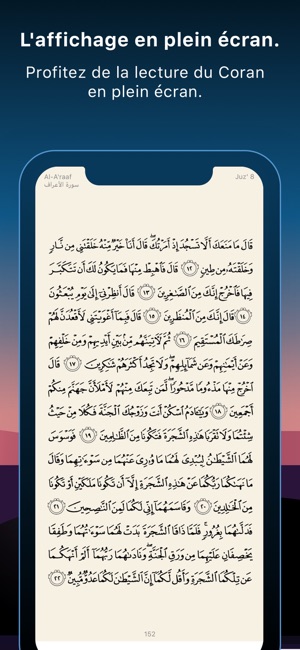 L'affichage en plein écran.
Profitez de la lecture du Coran
en plein écran.
Al-A'raaf
Juz' 8
سورة الأعراف
قَالَ مَا مَنَعَكَ أَلَّا تَسْجُدَ إِذْ أَمَرْتُكَ ۖ قَالَ أَنَا۠ خَيْرٌ مِّنْهُ خَلَقْتَنِى مِن نَّارٍ
وَخَلَقْتَهُۥ مِن طِينٍ ١٢ قَالَ فَٱهْبِطْ مِنْهَا فَمَا يَكُونُ لَكَ أَن تَتَكَبَّرَ
فِيهَا فَٱخْرُجْ إِنَّكَ مِنَ ٱلصَّٰغِرِينَ ١٣ قَالَ أَنظِرْنِىٓ إِلَىٰ يَوْمِ يُبْعَثُونَ
١٤ قَالَ إِنَّكَ مِنَ ٱلْمُنظَرِينَ ١٥ قَالَ فَبِمَآ أَغْوَيْتَنِى لَأَقْعُدَنَّ لَهُمْ
صِرَٰطَكَ ٱلْمُسْتَقِيمَ ١٦ ثُمَّ لَءَاتِيَنَّهُم مِّنۢ بَيْنِ أَيْدِيهِمْ وَمِنْ خَلْفِهِمْ
وَعَنْ أَيْمَٰنِهِمْ وَعَن شَمَآئِلِهِمْ ۖ وَلَا تَجِدُ أَكْثَرَهُمْ شَٰكِرِينَ ١٧ قَالَ
ٱخْرُجْ مِنْهَا مَذْءُومًا مَّدْحُورًا ۖ لَّمَن تَبِعَكَ مِنْهُمْ لَأَمْلَأَنَّ جَهَنَّمَ مِنكُمْ
أَجْمَعِينَ ١٨ وَيَٰٓـَٔادَمُ ٱسْكُنْ أَنتَ وَزَوْجُكَ ٱلْجَنَّةَ فَكُلَا مِنْ حَيْثُ
شِئْتُمَا وَلَا تَقْرَبَا هَٰذِهِ ٱلشَّجَرَةَ فَتَكُونَا مِنَ ٱلظَّٰلِمِينَ ١٩ فَوَسْوَسَ
لَهُمَا ٱلشَّيْطَٰنُ لِيُبْدِىَ لَهُمَا مَا وُۥرِىَ عَنْهُمَا مِن سَوْءَٰتِهِمَا وَقَالَ
مَا نَهَىٰكُمَا رَبُّكُمَا عَنْ هَٰذِهِ ٱلشَّجَرَةِ إِلَّآ أَن تَكُونَا مَلَكَيْنِ أَوْ تَكُونَا
مِنَ ٱلْخَٰلِدِينَ ٢٠ وَقَاسَمَهُمَآ إِنِّى لَكُمَا لَمِنَ ٱلنَّٰصِحِينَ ٢١
فَدَلَّىٰهُمَا بِغُرُورٍ ۚ فَلَمَّا ذَاقَا ٱلشَّجَرَةَ بَدَتْ لَهُمَا سَوْءَٰتُهُمَا وَطَفِقَا
يَخْصِفَانِ عَلَيْهِمَا مِن وَرَقِ ٱلْجَنَّةِ ۖ وَنَادَىٰهُمَا رَبُّهُمَآ أَلَمْ أَنْهَكُمَا
عَن تِلْكُمَا ٱلشَّجَرَةِ وَأَقُل لَّكُمَآ إِنَّ ٱلشَّيْطَٰنَ لَكُمَا عَدُوٌّ مُّبِينٌ ٢٢
152